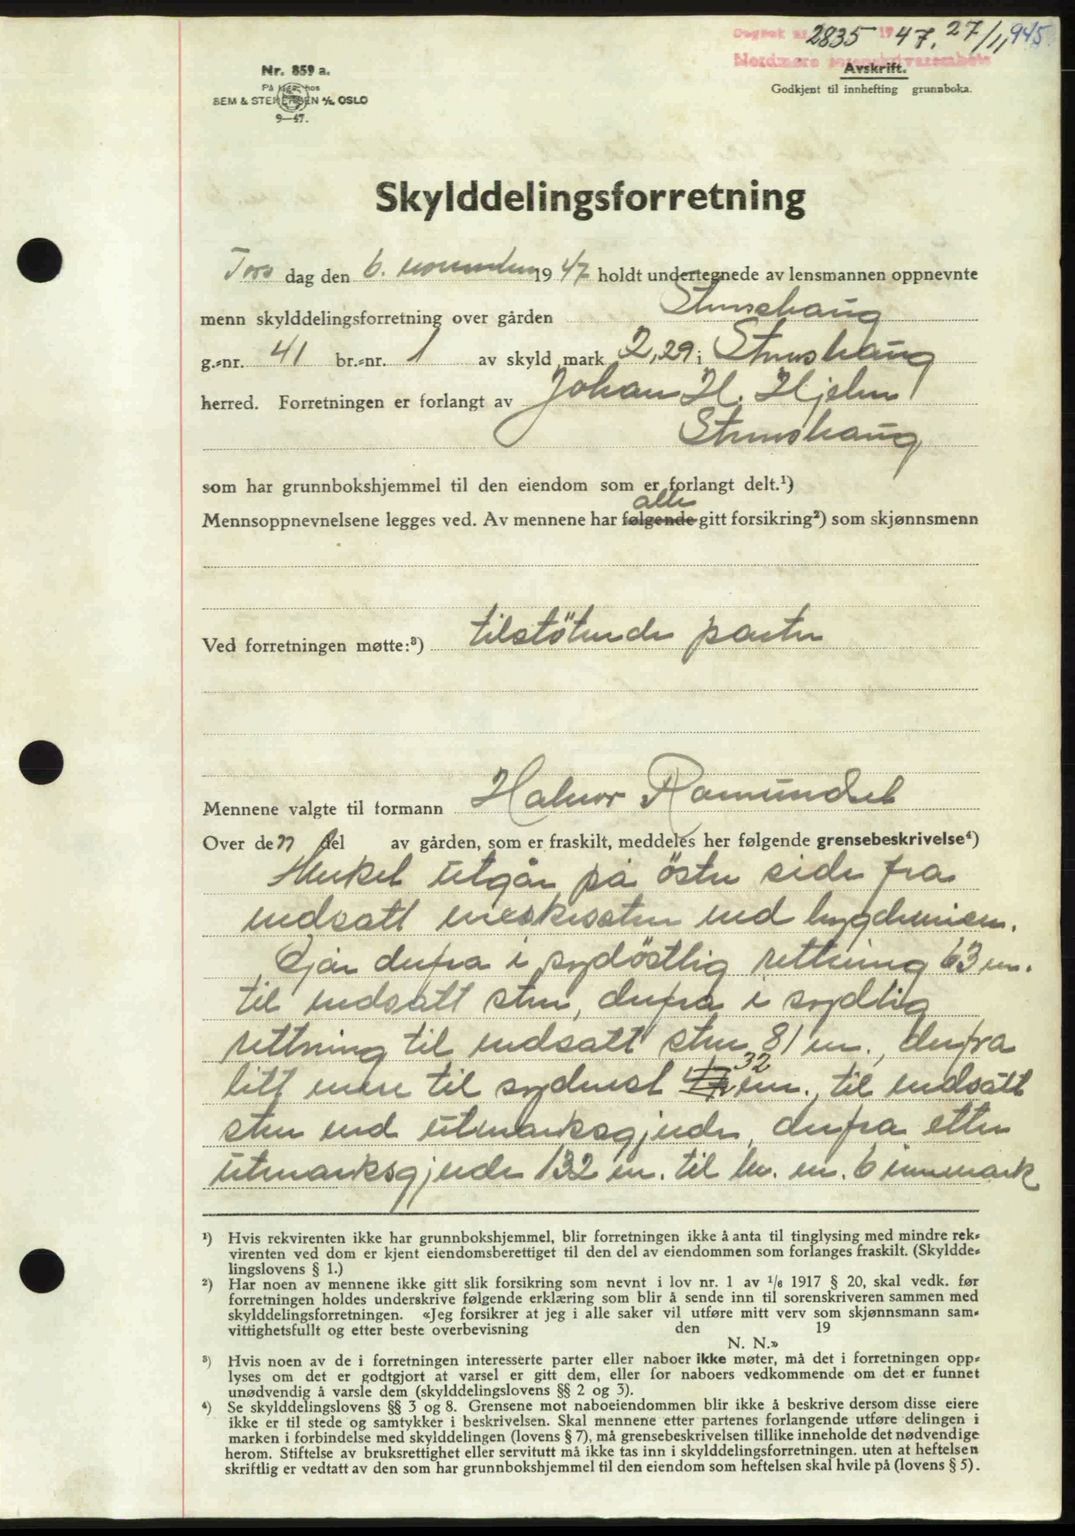 Dagbok nr. 2835 1947. 27/11 945
Nordmøre sorenskriverembete
Nr. 859 a.
På lager hos
SEM & STENERSEN A/S, OSLO
9—47.
Avskrift.
Godkjent til innhefting grunnboka.
Skylddelingsforretning
Tors dag den 6. november 1947 holdt undertegnede av lensmannen oppnevnte
menn skylddelingsforretning over gården Strusehaug
g.-nr. 41 br.-nr. 1 av skyld mark 2,29 i Strushaug
herred. Forretningen er forlangt av Johan H. Hjelm
Strushaug
som har grunnbokshjemmel til den eiendom som er forlangt delt.¹)
alle
Mennsoppnevnelsene legges ved. Av mennene har følgende gitt forsikring²) som skjønnsmenn
Ved forretningen møtte:³) tilstötende parter
Mennene valgte til formann Halvor Romundset
Over den del av gården, som er fraskilt, meddeles her følgende grensebeskrivelse⁴)
Merket utgår på östre side fra
nedsatt merkesten ved bygdeveien.
Går derfra i sydöstlig rettning 63 m.
til nedsatt sten, derfra i sydlig
rettning til nedsatt sten 81 m., derfra
litt mere til sydvest 32 m., til nedsatt
sten ved utmarksgjerde, derfra etter
utmarksgjerde 132 m. til br. nr. 6 innmark
¹) Hvis rekvirenten ikke har grunnbokshjemmel, blir forretningen ikke å anta til tinglysing med mindre rek-
virenten ved dom er kjent eiendomsberettiget til den del av eiendommen som forlanges fraskilt. (Skyldde-
lingslovens § 1.)
²) Har noen av mennene ikke gitt slik forsikring som nevnt i lov nr. 1 av 1/6 1917 § 20, skal vedk. før
forretningen holdes underskrive følgende erklæring som blir å sende inn til sorenskriveren sammen med
skylddelingsforretningen. «Jeg forsikrer at jeg i alle saker vil utføre mitt verv som skjønnsmann sam-
vittighetsfullt og etter beste overbevisning den 19
N. N.»
³) Hvis noen av de i forretningen interesserte parter eller naboer ikke møter, må det i forretningen opp-
lyses om det er godtgjort at varsel er gitt dem, eller for naboers vedkommende om det er funnet
unødvendig å varsle dem (skylddelingslovens §§ 2 og 3).
⁴) Se skylddelingslovens §§ 3 og 8. Grensene mot naboeiendommen blir ikke å beskrive dersom disse eiere
ikke er til stede og samtykker i beskrivelsen. Skal mennene etter partenes forlangende utføre delingen i
marken i forbindelse med skylddelingen (lovens § 7), må grensebeskrivelsen tillike inneholde det nødvendige
herom. Stiftelse av bruksrettighet eller servitutt må ikke tas inn i skylddelingsforretningen, uten at heftelsen
skriftlig er vedtatt av den som har grunnbokshjemmel til den eiendom som heftelsen skal hvile på (lovens § 5).